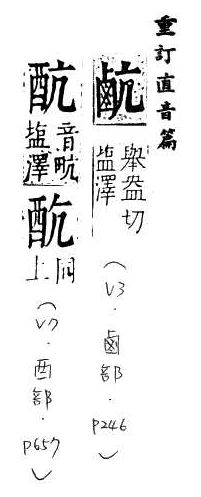 重訂直音篇
䴚
舉盎切
塩澤
（V3．鹵部．P246）
酛
音䀪
塩澤
酛
同上
（V7．酉部．P657）